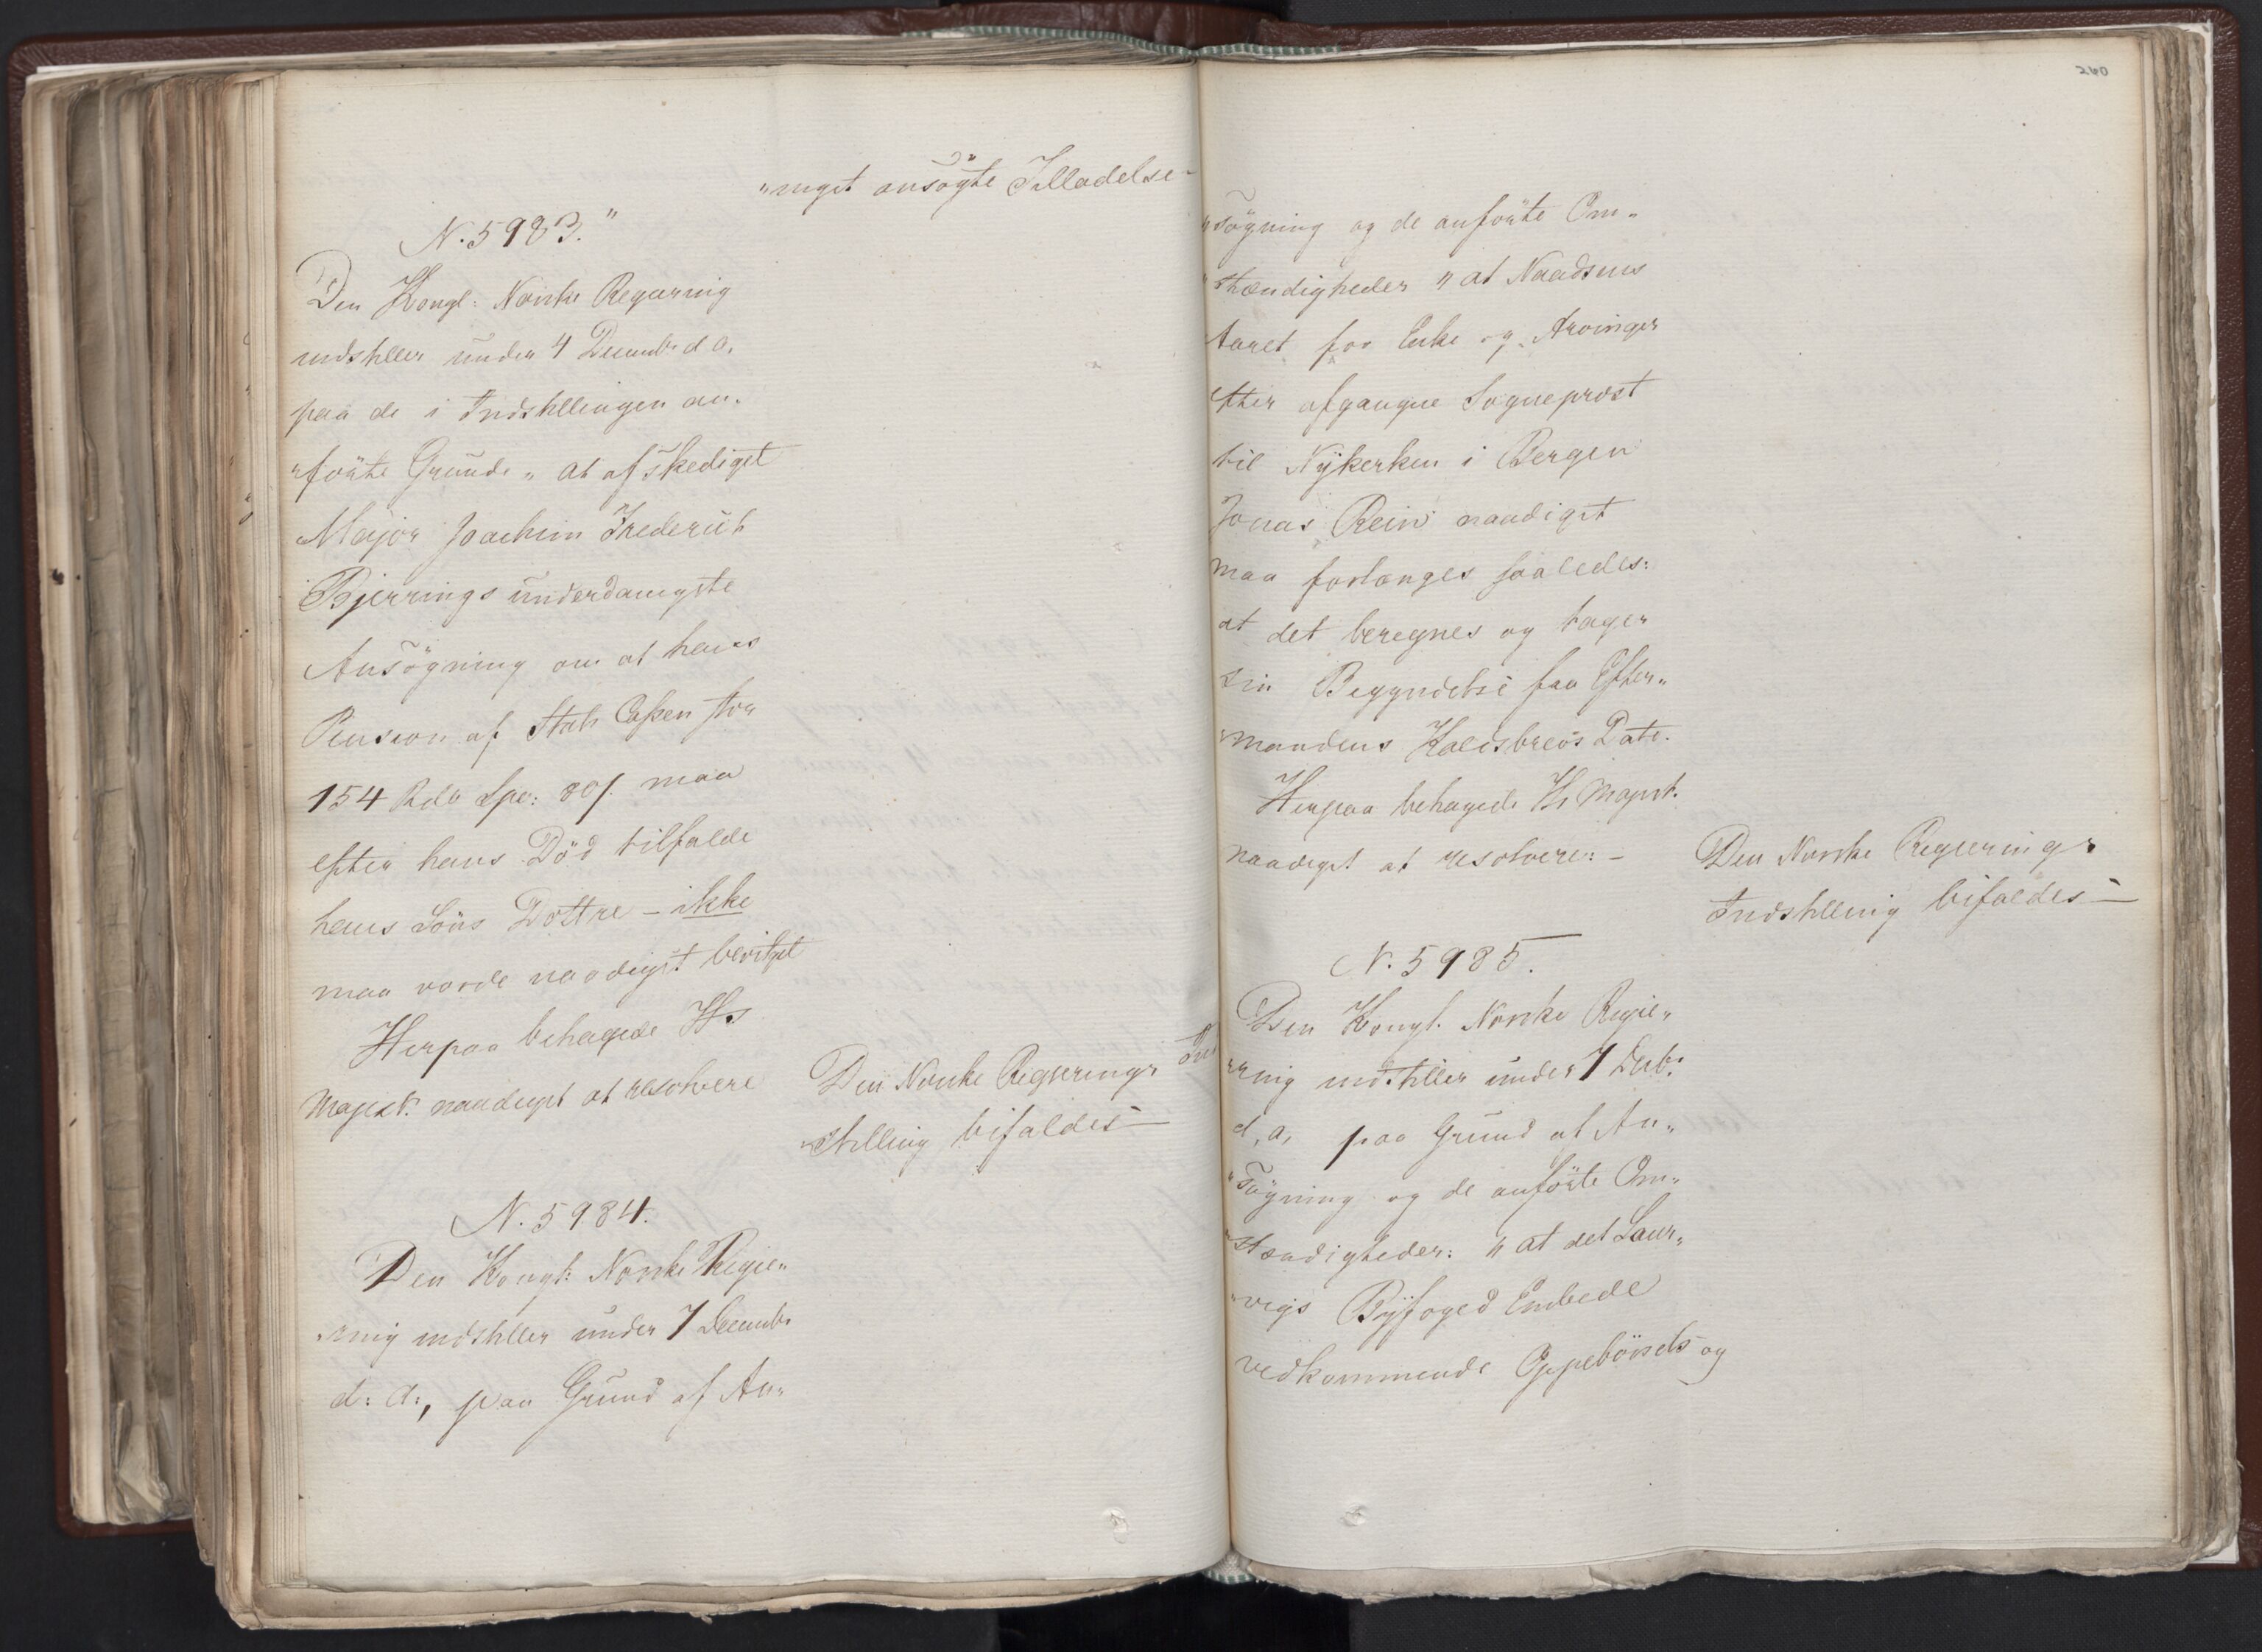 "nigst ansøgte Tilladelse
N. 5983."
Den Kongl: Norske Regiering
indstiller under 4 Decembr d. a.
paa de i Indstillingen an„
„førte Grunde „ at afskediget
Major Joachim Frederich
Bjerrings underdanigste
Ansøgning om at hans
Pension af Stats Cassen stor
154 Rdlr Spe: 80 s. maa
efter hans Död tilfalde
hans Söns Döttre – ikke
maa vorde naadigst bevilget
Herpaa behagede Hs
Majest. naadigst at resolvere
Den Norske Regierings In
„stilling bifaldes –
N. 5984.
Den Kongl: Norske Regie„
„ring indstiller under 7 Decembr
d: a:, paa Grund af An„
260
„søgning og de anførte Om„
„stændigheder „ at Naadsens
Aaret for Enke og Arvinger
efter afgangne Sogneprest
til Nÿkerken i Bergen
Jonas Rein naadigst
maa forlænges saaledes:
at det beregnes og tager
sin Begyndelse fra Efter„
„mandens Kaldsbrevs Dato.
Herpaa behagede Hs Majest.
naadigst at resolvere: –
Den Norske Regierings
Indstilling bifaldes –
N. 5985.
Den Kongl. Norske Regie„
„ring indstiller under 7 Decbr.
d, a, paa Grund af An„
„søgning og de anførte Om„
„stændigheder: „ at det Laur„
„vigs Bÿefoged Embede
vedkommende Oppebörsels og